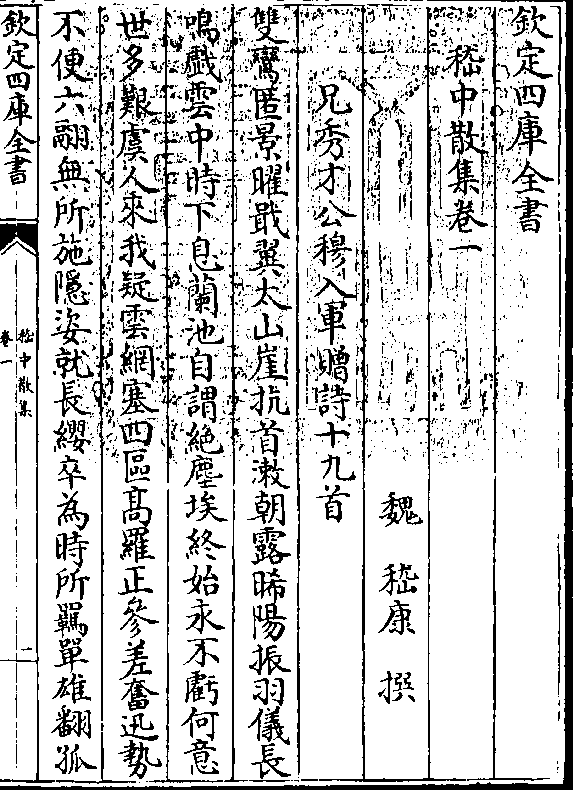 欽定四庫全書
嵇中散集卷一
魏 嵇康 撰
兄秀才公穆入軍贈詩十九首
雙鸞匿景曜戢翼太山崖抗首漱朝露晞陽振羽儀長
鳴戲雲中時下息蘭池自謂絶塵埃終始永不虧何意
世多艱虞人來我疑雲網塞四區髙羅正參差奮迅勢
不便六翮無所施隱姿就長纓卒為時所羈單雄翩孤
欽定四庫全書
嵇中散集
卷一
一